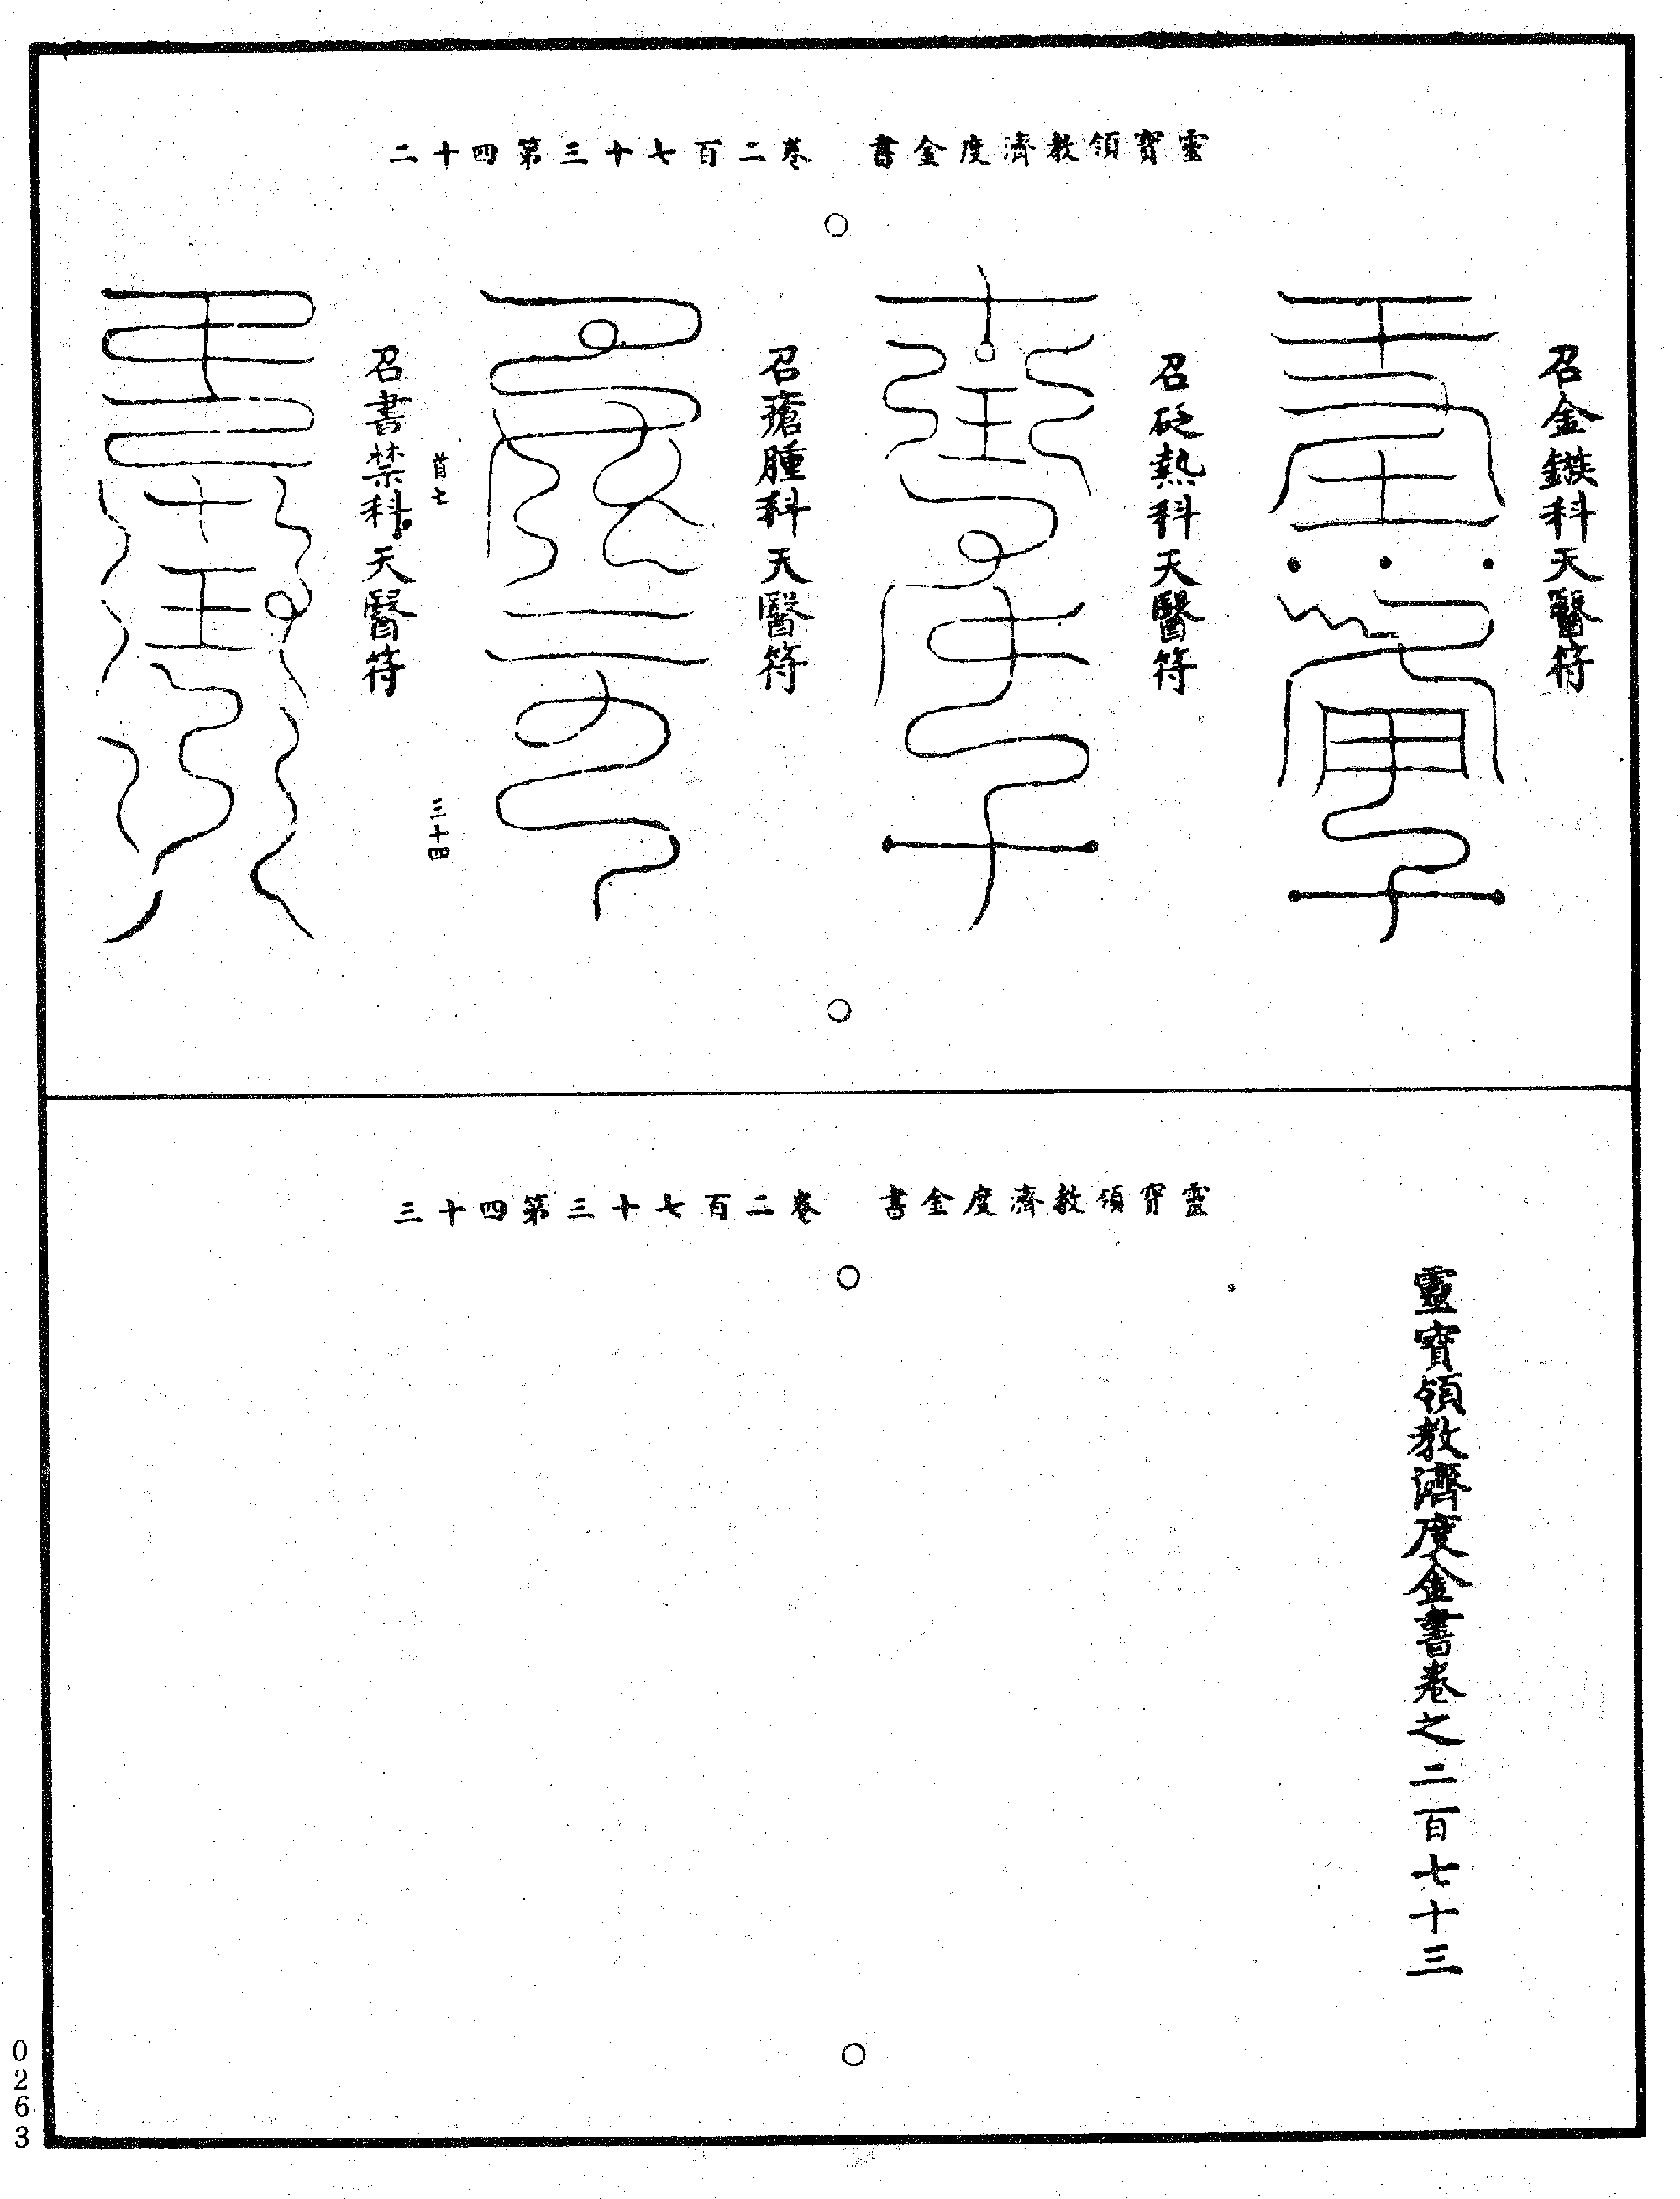 靈寶領教濟度金書　卷二百七十三第四十二
召金鏃科天醫符
召砭熱科天醫符
召瘡腫科天醫符
首七　三十四
召書禁科天醫符
靈寶領教濟度金書　卷二百七十三第四十三
靈寶領教濟度金書卷之二百七十三
0263